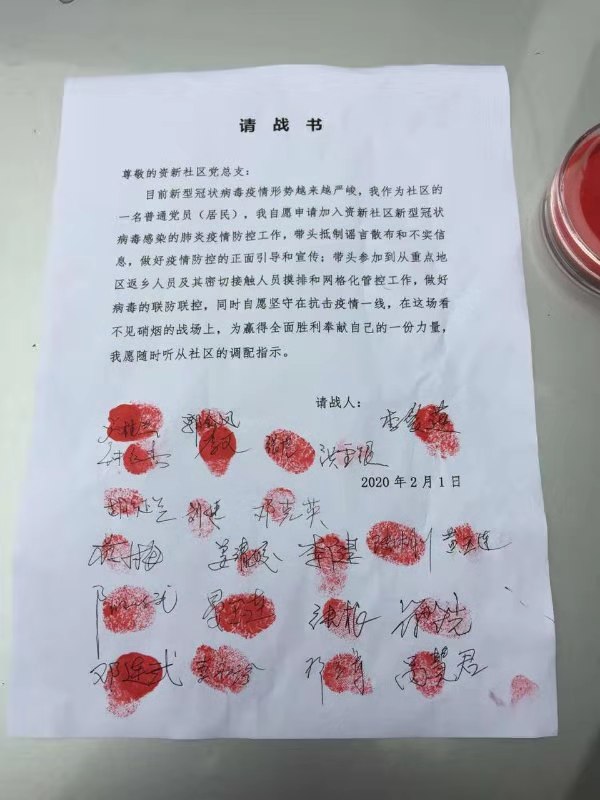 请战书
尊敬的资新社区党总支：
目前新型冠状病毒疫情形势越来越严峻，我作为社区的
一名普通党员（居民），我自愿申请加入资新社区新型冠状
病毒感染的肺炎疫情防控工作，带头抵制谣言散布和不实信
息，做好疫情防控的正面引导和宣传；带头参加到从重点地
区返乡人员及其密切接触人员摸排和网格化管控工作，做好
病毒的联防联控，同时自愿坚守在抗击疫情一线，在这场看
不见硝烟的战场上，为赢得全面胜利奉献自己的一份力量，
我愿随时听从社区的调配指示。
请战人：
2020年2月1日
邓克英
邓连武 高慧君